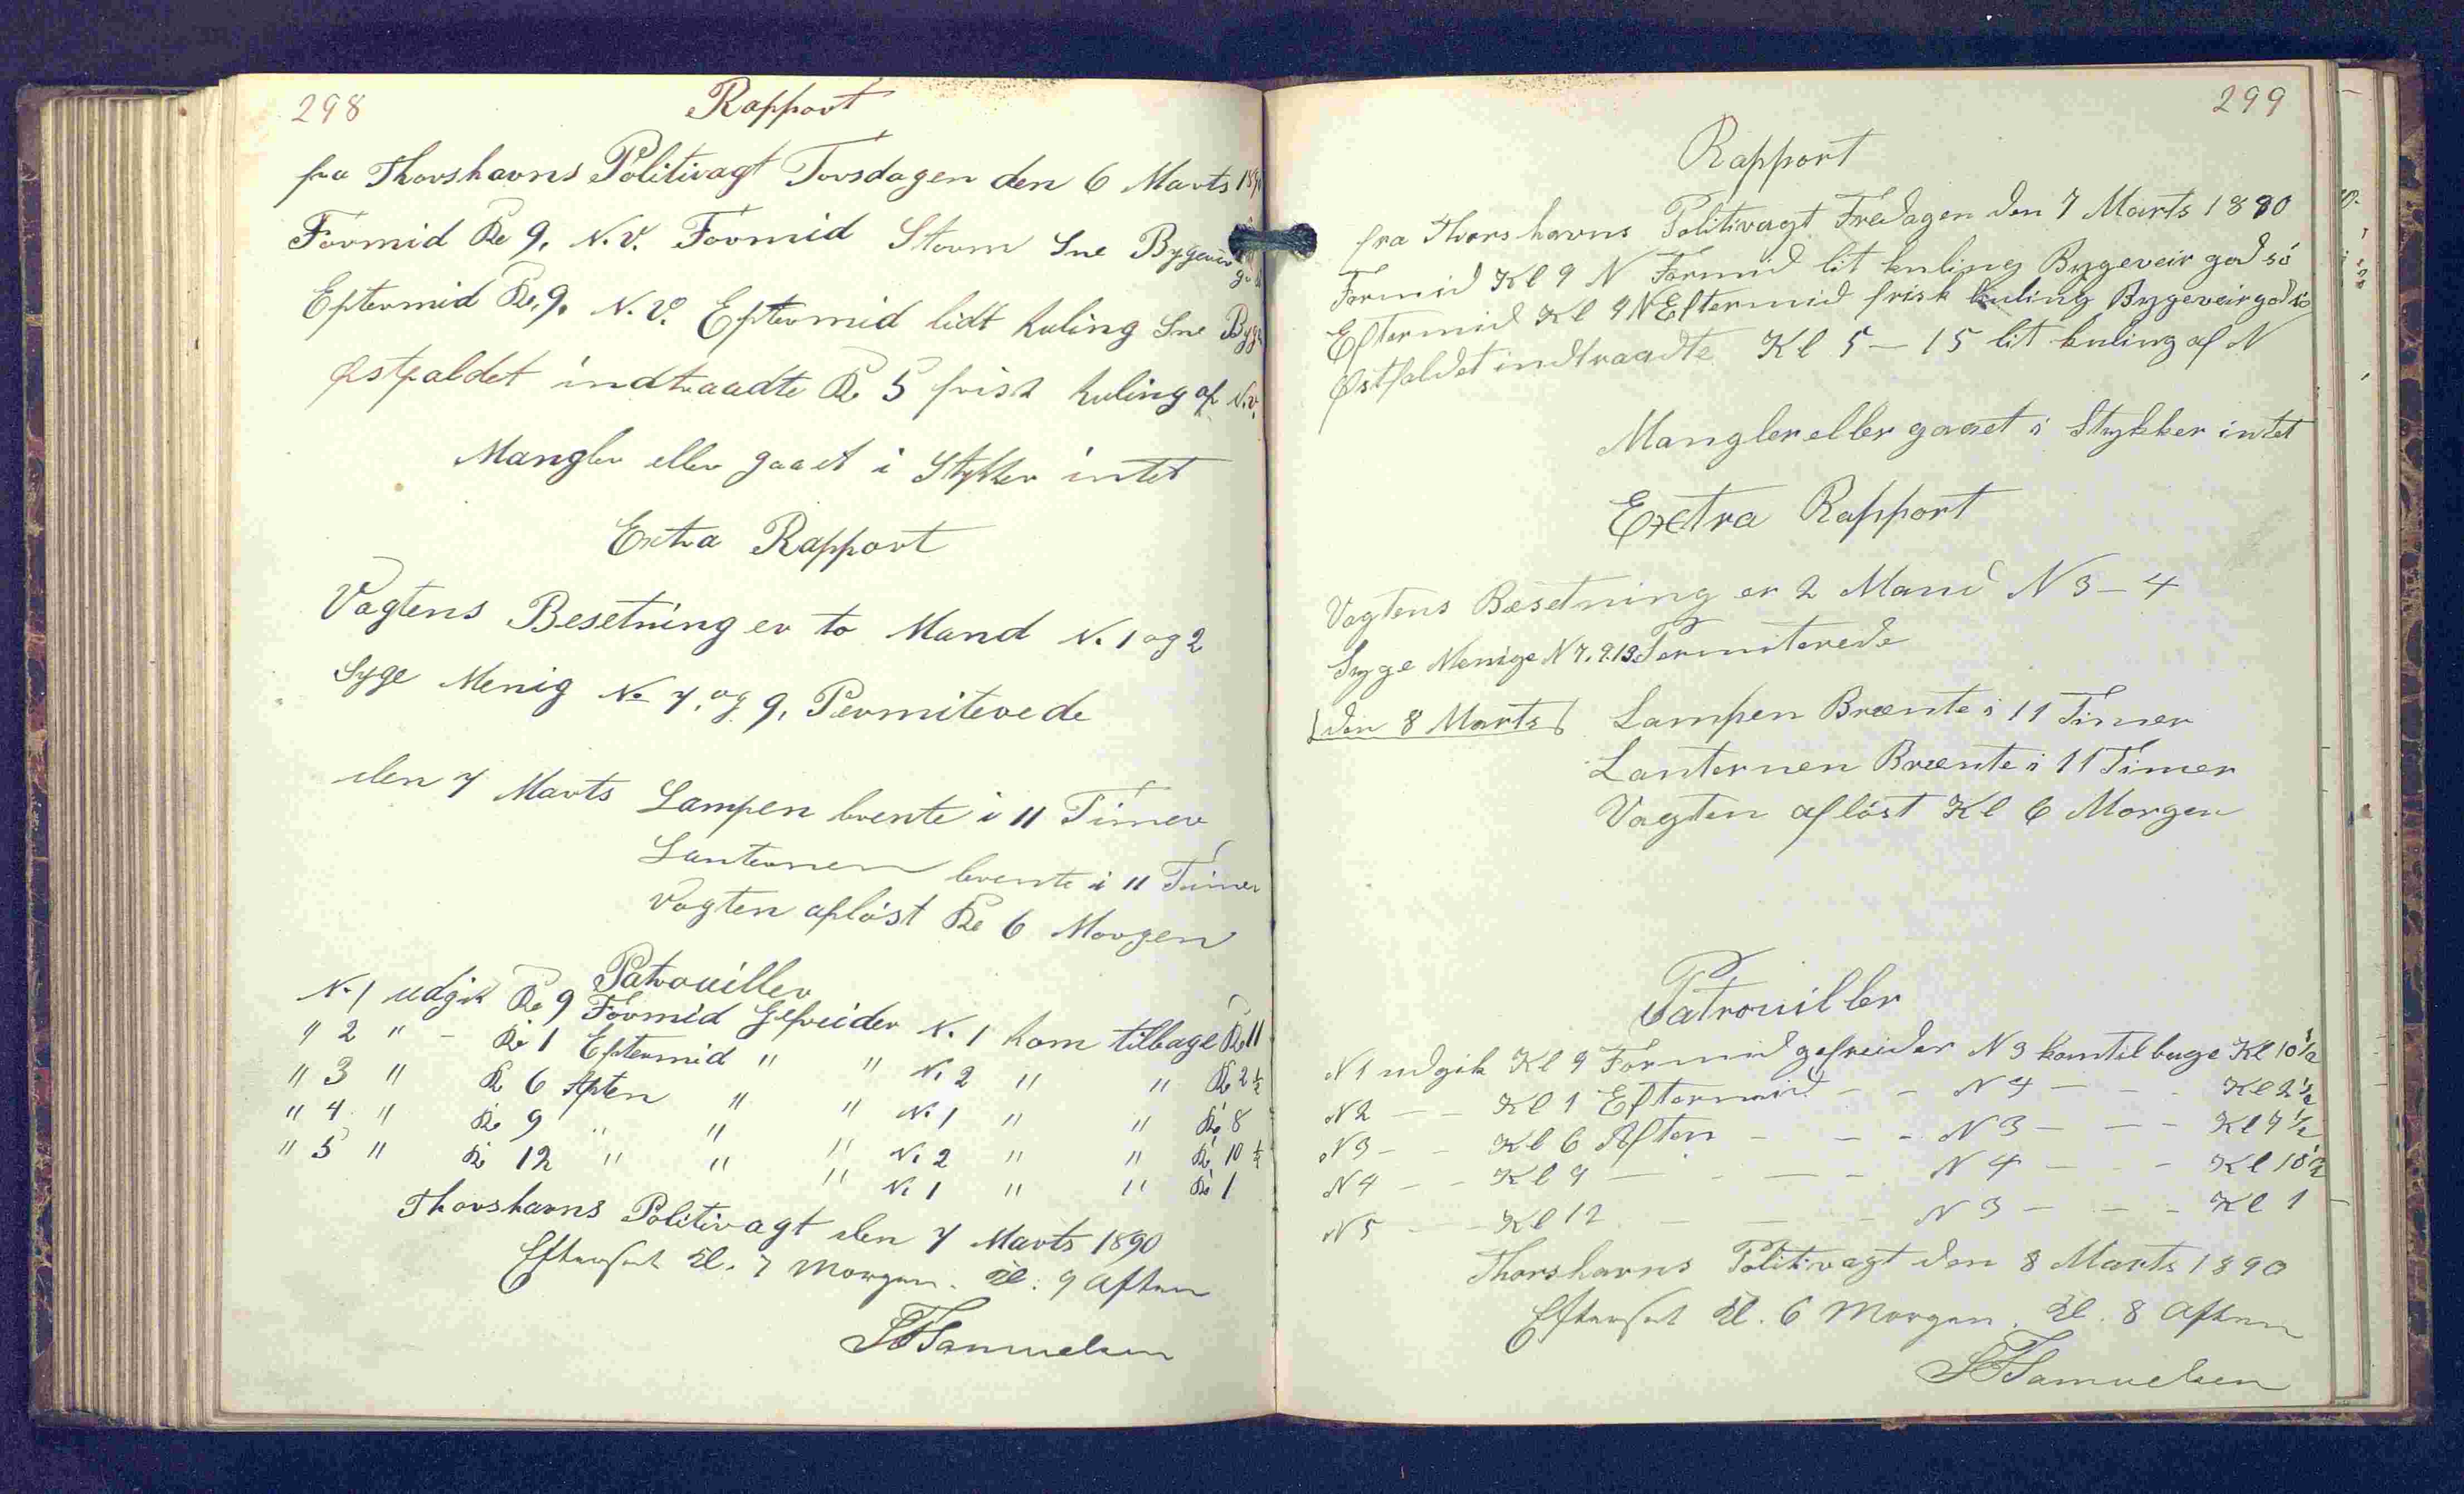 298
Rapport
fra Thorshavns Politivagt Torsdagen den 6 Marts 1890
Formid Kl 9. N.V. Formid Storm Sne Bygeveir
Eftermid Kl. 9. N.V. Eftermid lidt kuling Sne Byge
Østfaldet indtraadte Kl 5 frisk kuling af N.V.
Mangler eller gaaet i Stykker intet
Extra Rapport
Vagtens Besetning er to Mand N. 1 og 2
Syge Menig No 7. og 9, Permiterede
den 7 Marts Lampen brente i 11 Timer
Lanternen brente i 11 Timer
Vagten afløst Kl 6 Morgen
Patrouiller
N. 1 udgik Kl 9 Formid Gefreider N. 1 kom tilbage Kl 11
" 2 " - Kl 1 Eftermid " " N. 2 " " Kl 2½
" 3 " Kl 6 Aften " " N. 1 " " Kl 8
" 4 " Kl 9 " " " N. 2 " " Kl 10½
" 5 " Kl 12 " " " N. 1 " " Kl 1
Thorshavns Politivagt den 7 Marts 1890
Efterset Kl. 7 Morgen. Kl. 9 Aften
Samuelsen
299
Rapport
fra Thorshavns Politivagt Fredagen den 7 Marts 1880
Formid Kl 9 N Formid lit kuling Bygeveir god sö
Eftermid Kl 9 N Eftermid frisk kuling Bygeveir god sö
Østfaldet indtraadte Kl 5 - 15 lit kuling af N
Mangler eller gaaet i Stykker intet
Extra Rapport
Vagtens Besetning er 2 Mand N 3 - 4
Syge Menige N 7. 9. 13. Permiterede
den 8 Marts Lampen Brænte i 11 Timer
Lanternen Brænte i 11 Timer
Vagten afløst Kl 6 Morgen
Patrouiller
N 1 udgik Kl 9 Formid gefreider N 3 kom tilbage Kl 10½
N 2 - - Kl 1 Eftermid - - N 4 - - - Kl 2½
N 3 - - Kl 6 Aften - - - N 3 - - - Kl 7½
N 4 - - Kl 9 - - - - N 4 - - - Kl 10½
N 5 - - Kl 12 - - - N 3 - - - Kl 1
Thorshavns Politivagt den 8 Marts 1890
Efterset Kl. 6 Morgen. Kl. 8 Aften
Samuelsen